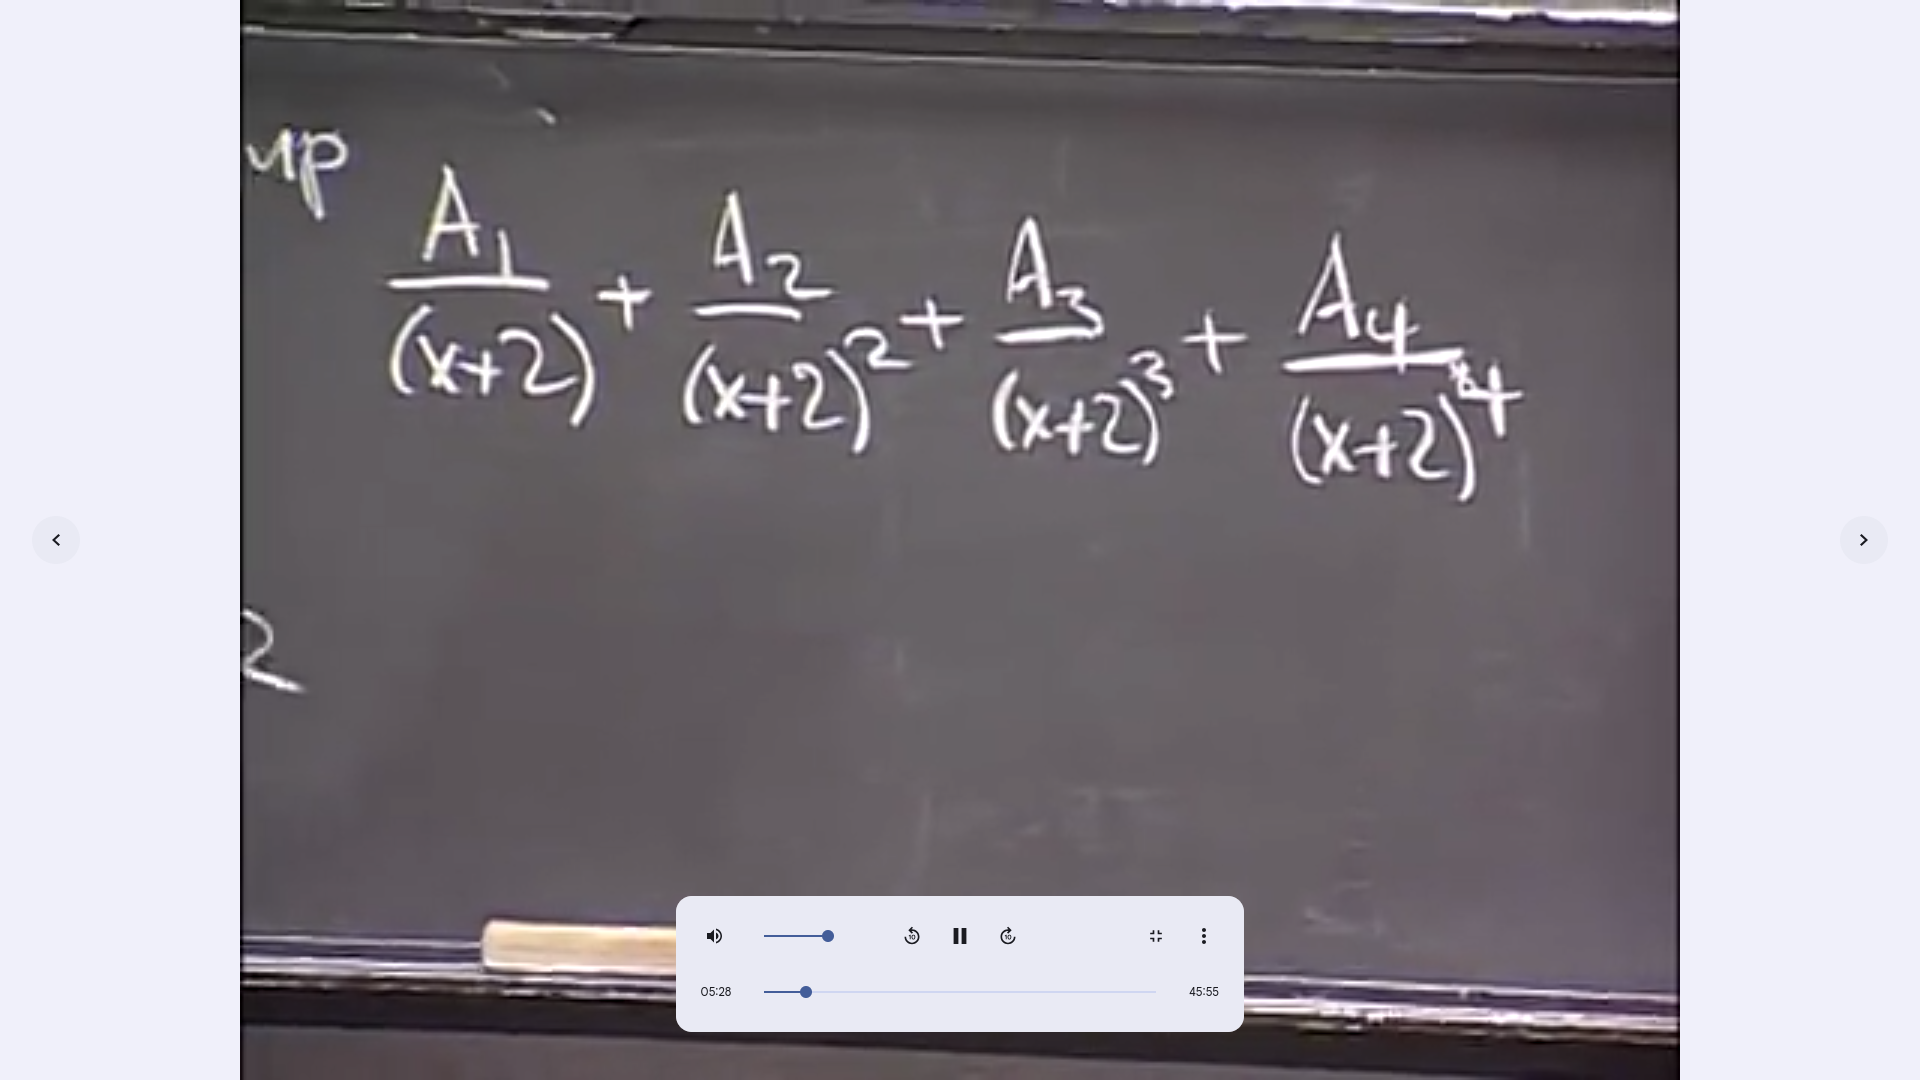 up
A₁/(x+2) + A₂/(x+2)² + A₃/(x+2)³ + A₄/(x+2)⁴
2
10 10
05:28 45:55